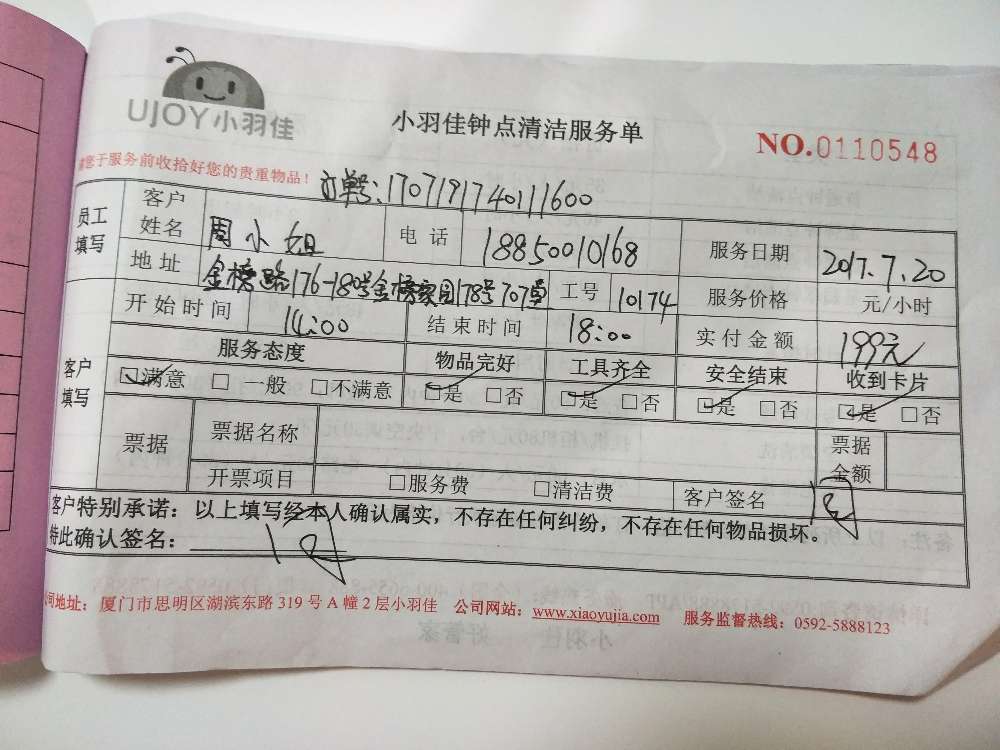 UJOY小羽佳
小羽佳钟点清洁服务单
NO.0110548
您于服务前收拾好您的贵重物品！
订单号:1707191740111600
员工填写 客户姓名 周小姐 电话 18850010168 服务日期 2017.7.20
地址 金榜路176-180号金榜家园178号707单 工号 10174 服务价格 元/小时
客户填写 开始时间 14:00 结束时间 18:00 实付金额 199元
服务态度 物品完好 工具齐全 安全结束 收到卡片
☑满意 □一般 □不满意 ☑是 □否 ☑是 □否 ☑是 □否 ☑是 □否
票据 票据名称 票据金额
开票项目 □服务费 □清洁费 客户签名 周
客户特别承诺：以上填写经本人确认属实，不存在任何纠纷，不存在任何物品损坏。
特此确认签名： 周
公司地址：厦门市思明区湖滨东路319号A幢2层小羽佳 公司网站：www.xiaoyujia.com 服务监督热线：0592-5888123